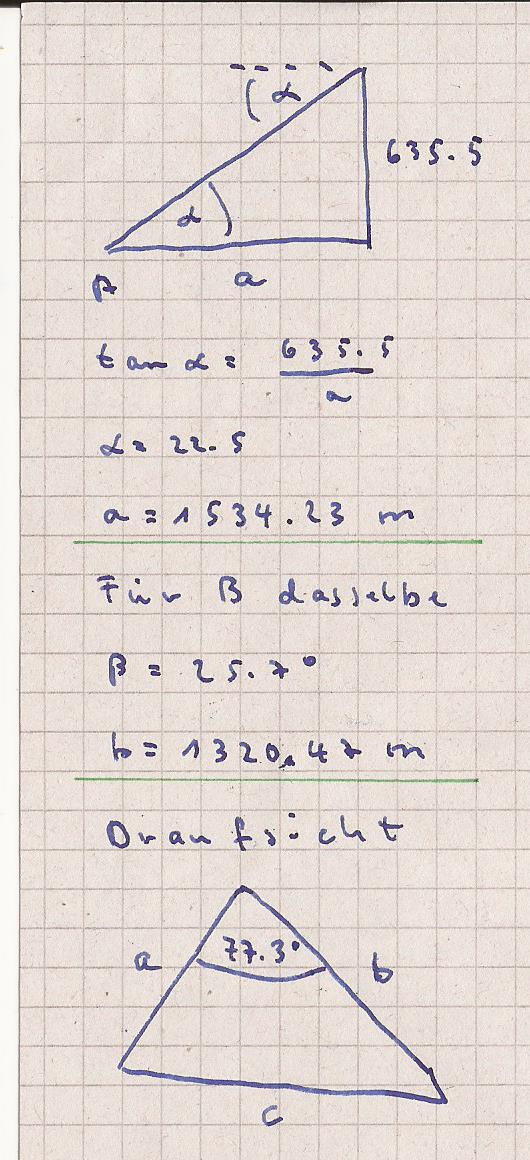 α
635.5
α
A
a
tan α = 635.5
a
α = 22.5
a = 1534.23 m
Für B dasselbe
β = 25.7°
b = 1320.47 m
Draufsicht
77.3°
a
b
c